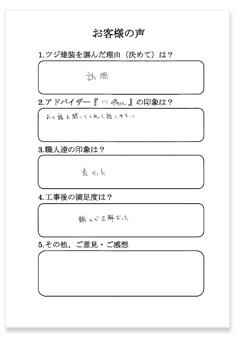 お客様の声
1.ツジ建装を選んだ理由（決めて）は？
訪問
2.アドバイザー『川嶋さん』の印象は？
よく話を聞いてくれて話しやすい
3.職人達の印象は？
良かった
4.工事後の満足度は？
頼んで正解だった
5.その他、ご意見・ご感想